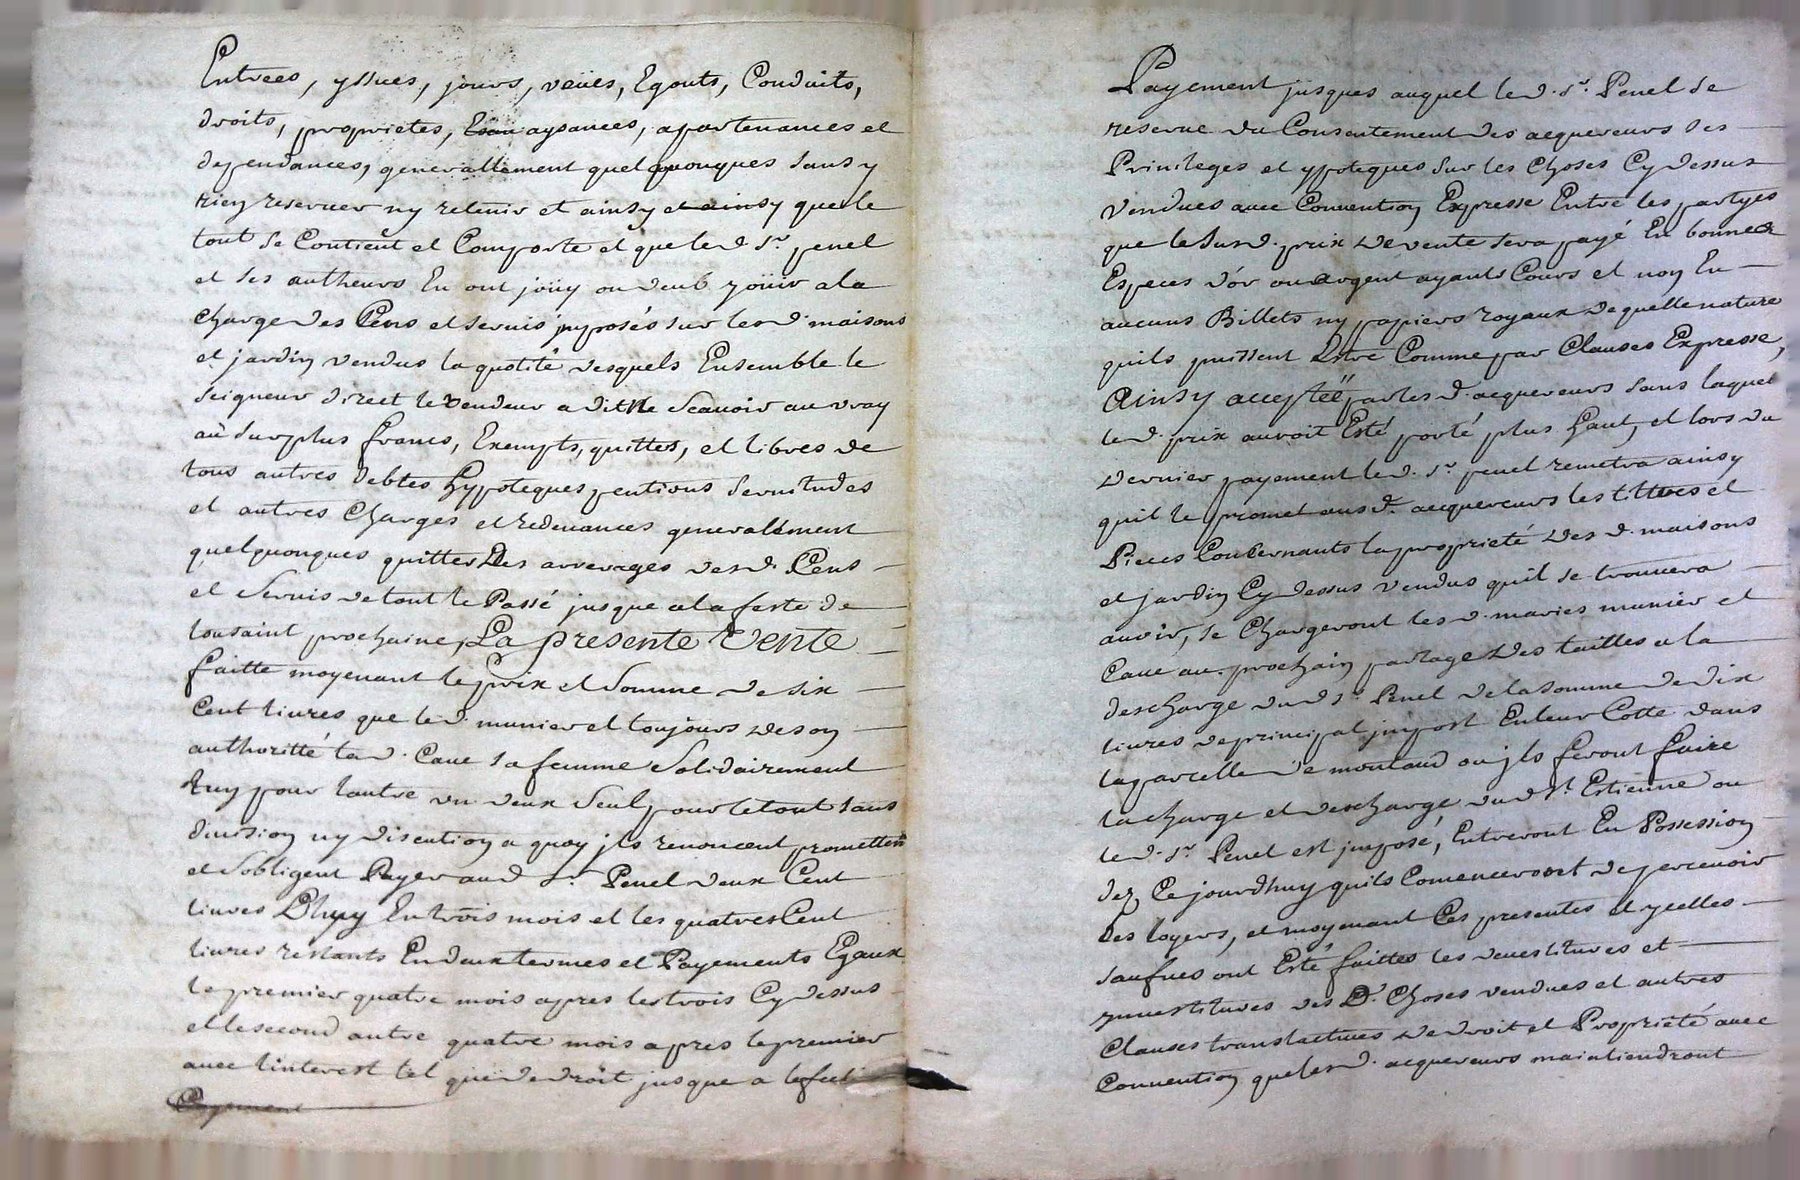 Entrees, yssues, jours, veües, Egouts, Conduits,
droits, proprietes, aysances, apartenances et
dependances, generallement quelquonques sans y
rien reserver ny retenir et ainsy et ainsy que le
tout se Contient et Comporte et que led Sr. penel
et ses autheurs En ont joüy ou deub joüir a la
Charge des Cens et servis jmposés sur lesd. maisons
et jardin vendus la quotité desquels Ensemble le
seigneur direct le vendeur a dit Ne scauoir au vray
au surplus francs, Exempts, quittes, et libres de
tous autres debtes hypoteques pentions servitudes
et autres Charges et redevances generallement
quelquonques quitter des arrerages desd. Cens
et servis de tout le Passé jusque a la feste de
tousaint prochaine, La presente Vente
faitte moyenant le prix et somme de six
Cent liures que led. munier et toujours de son
authoritté lad. Caue sa femme solidairement
L'un pour lautre un deux seul pour le tout sans
division ny discution a quoy jls renoncent promettent
et sobligent Payer aud Sr. Penel deux Cent
liures Dhuy En trois mois et les quatres Cent
liures restants En deux termes et Payements Egeaux
le premier quatre mois apres les trois Cy dessus
et le second autre quatre mois apres le premier
avec linterest tel que de droit jusque a
Payement
Payement jusques auquel led. Sr. Penel se
reserue du Consentement des acquereurs ses
Privileges et ypoteques sur les Choses Cy dessus
Vendues avec Convention Expresse Entre les partyes
que le susd. prix de vente sera payé En bonnes
Especes d'or ou argent ayants Cours et non En
aucuns Billets ny papiers royaux de quelle nature
quils puissent Estre Comme par Clauses Expresse,
Ainsy acceptéé par lesd. acquereurs sans laquel
led. prix auroit Esté porté plus haut, et lors du
dernier payement led. Sr. penel remetra ainsy
quil le promet ausd. acquereurs les tittres et
Pieces Concernants la proprieté des d. maisons
et jardin Cy dessus vendus quil se trouuera
auoir, se Chargeront lesd. maries munier et
Caue au prochain partage des tailles a la
descharge dud Sr. Penel de la somme de dix
liures de principal jmpost En leur Cotte dans
la parcelle de montaud ou jls feront faire
la charge et descharge dud St. Estienne ou
led. Sr. Penel est jmposé, Entreront En Possession
dez Ce jourdhuy quils Comenceront de percevoir
les loyers, et moyenant Ces presentes et ycelles
saufues ont Esté faittes les devestitures et
ynvestitures des D. Choses vendues et autres
Clauses translactives de droit et Proprieté avec
Convention que lesd. acquereurs maintiendront